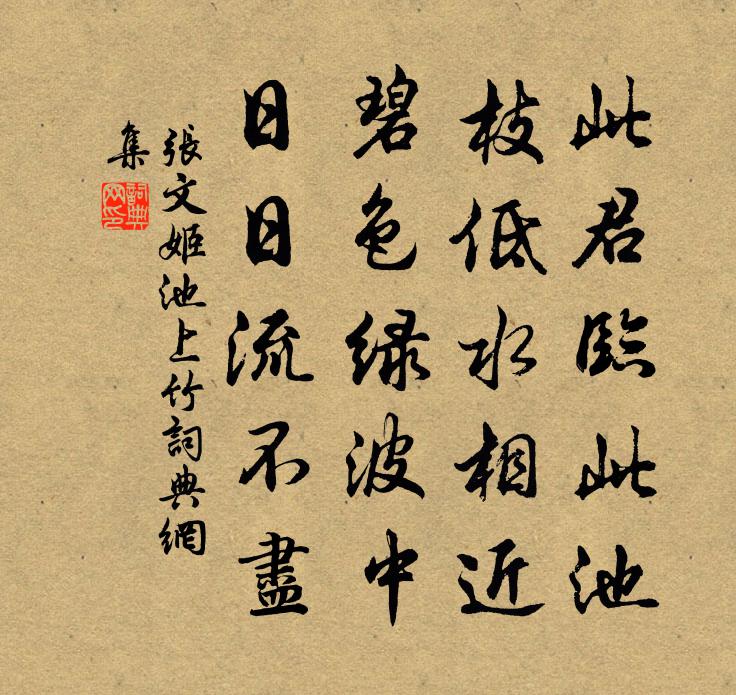 此君臨此池
枝低水相近
碧色綠波中
日日流不盡
張文姬池上竹詞典網
集
詞典
网印